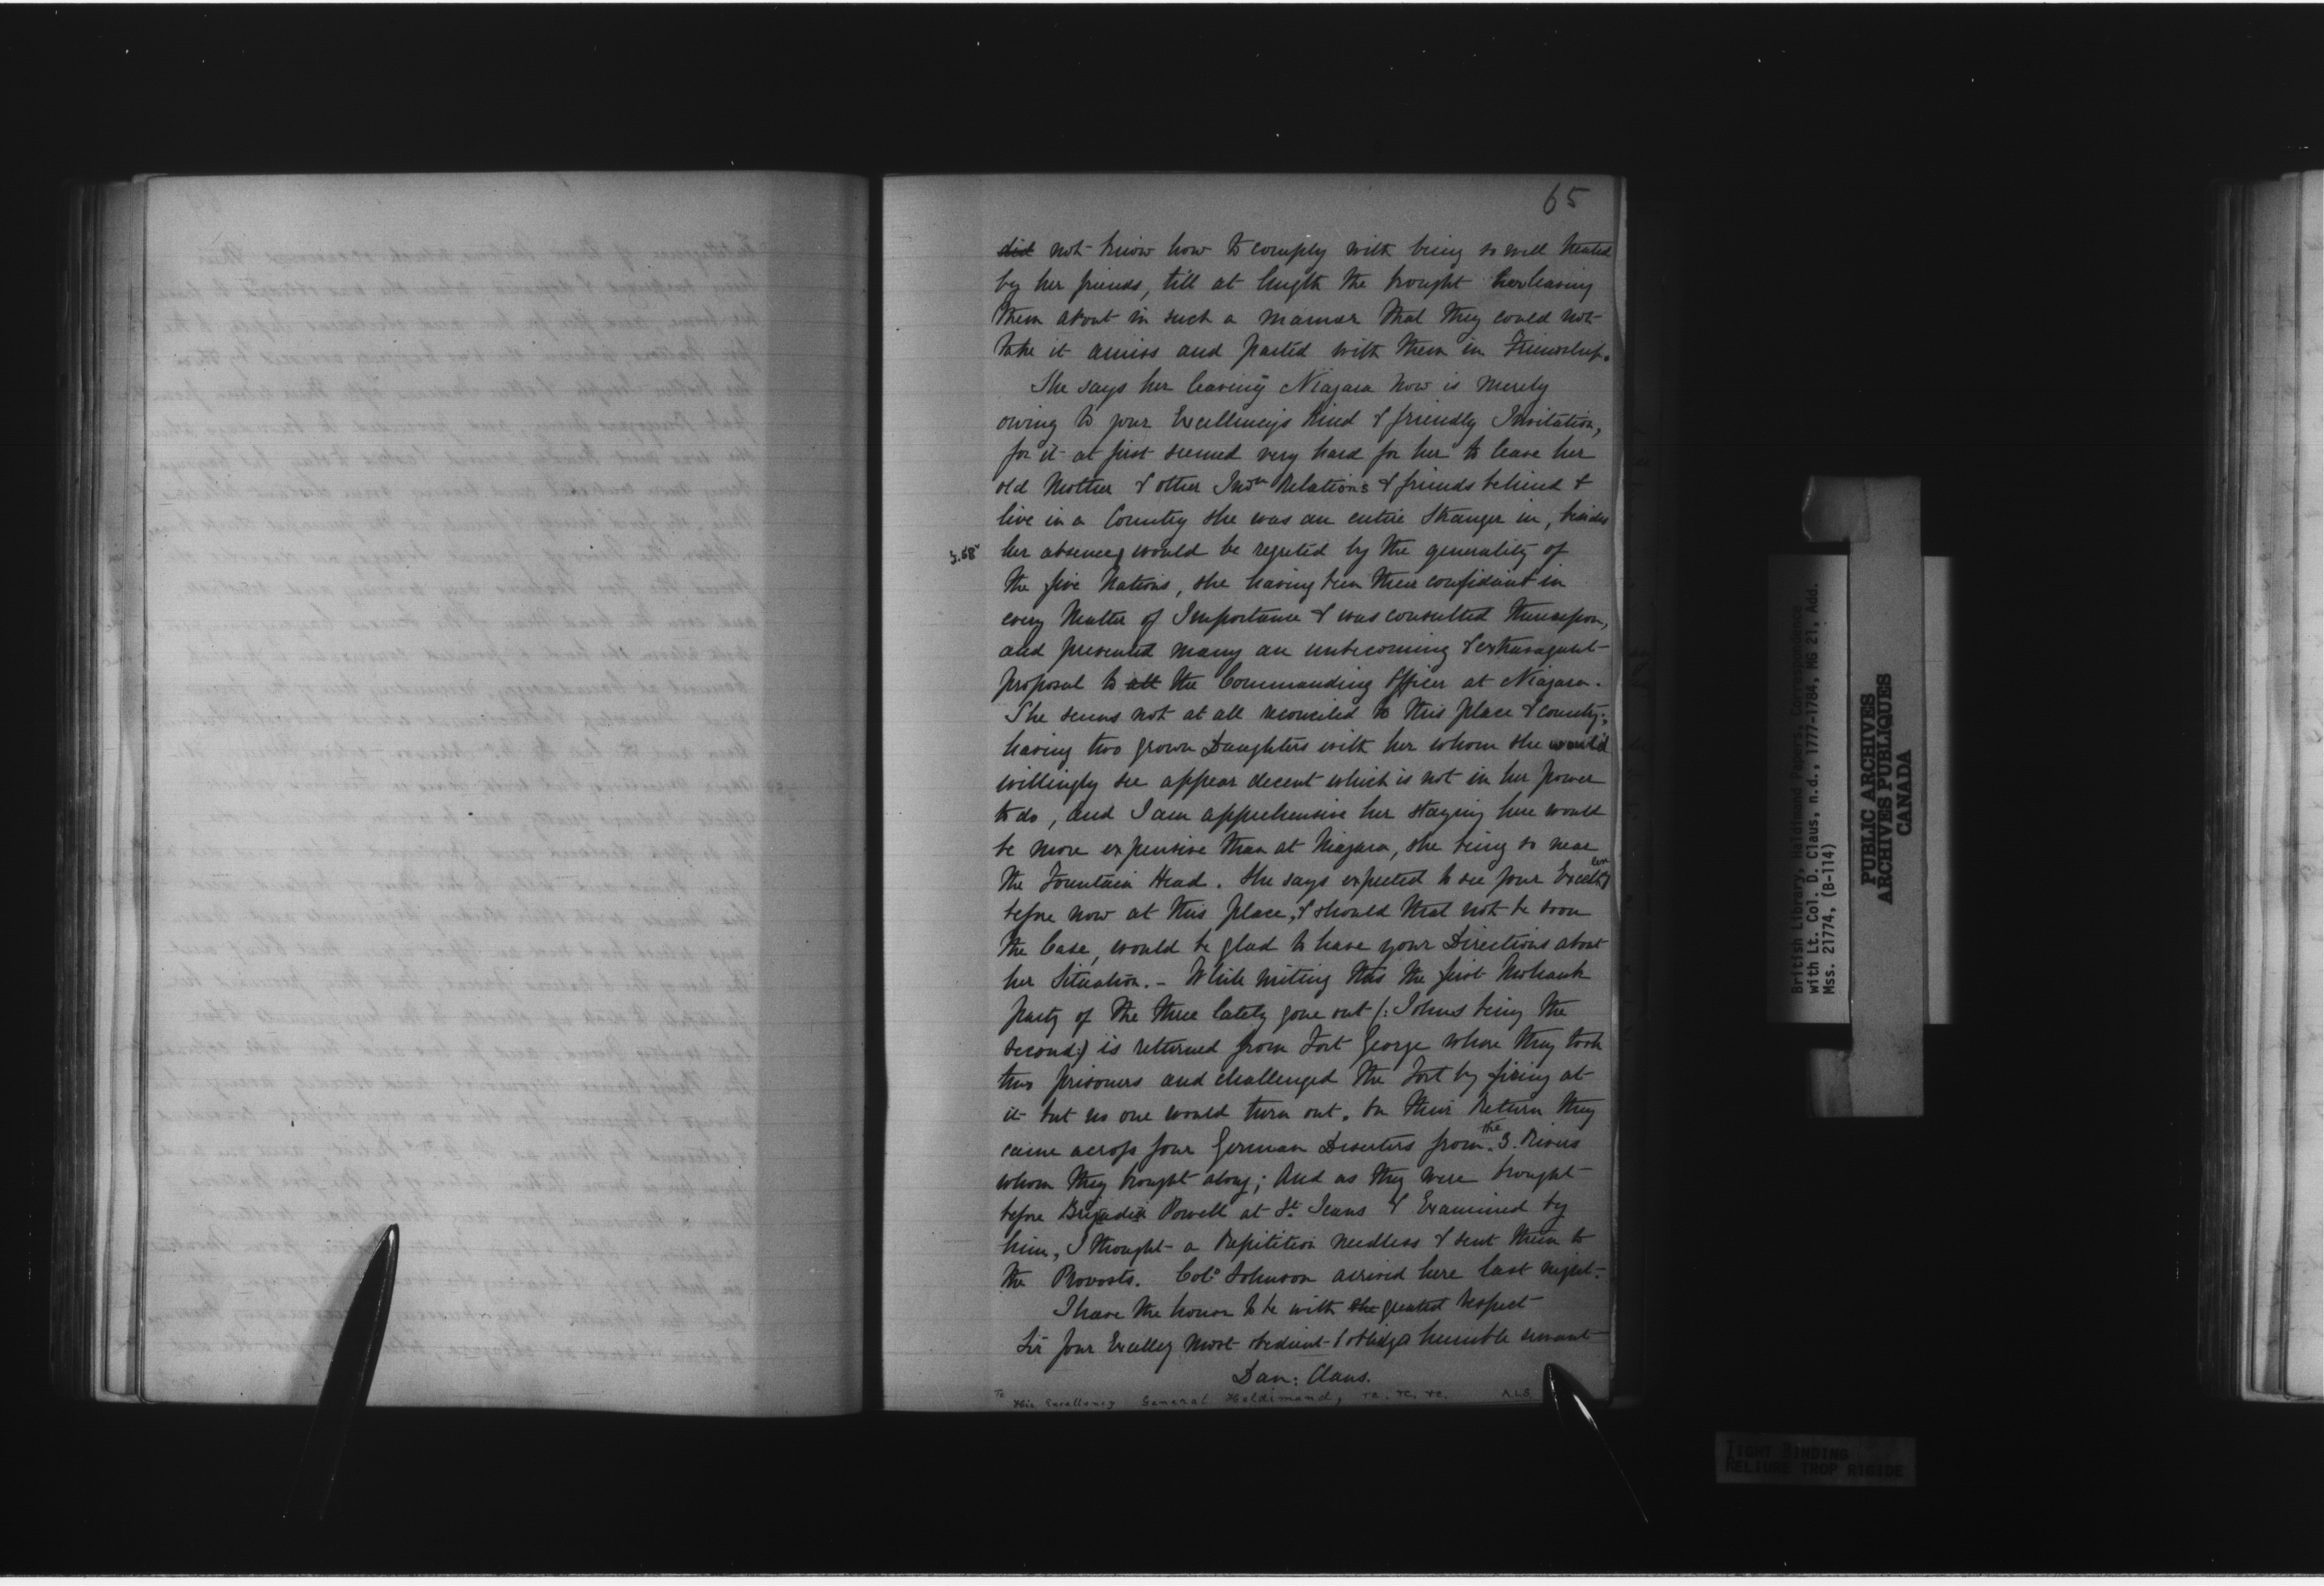 65
did not know how to comply with being so well treated
by her friends, till at length she brought her leaving
them about in such a manner that they could not
take it amiss and parted with them in Friendship.
She says her leaving Niagara now is merely
owing to your Excellency's kind & friendly Invitation,
for it at first seemed very hard for her to leave her
old Mother & other Indn Relations & friends behind &
live in a Country she was an entire Stranger in, besides
f.58v her absence would be regreted by the generality of
the five Nations, she having been their confidant in
every Matter of Importance & was consulted thereupon,
and prevented many an unbecoming & extravagant
proposal to all the Commanding Officer at Niagara.
She seems not at all reconciled to this place & country;
having two grown Daughters with her whom she would
willingly see appear decent which is not in her power
to do, and I am apprehensive her staying here would
be more expensive than at Niagara, she being so near
the Fountain Head. She says expected to see your Excellcy
before now at this place, & should that not be soon
the Case, would be glad to have your Directions about
her Situation. - While writing this the first Mohawk
party of the three lately gone out (: Johns being the
second:) is returned from Fort George where they took
two prisoners and challenged the Fort by firing at
it but no one would turn out. On their Return they
came across four German Deserters from the 3. Rivers
whom they brought along; And as they were brought
before Brigadier Powell at St. Jeans & Examined by
him, I thought a Repitition needless & sent them to
the Provosts. Colo Johnson arrived here last night.
I have the honor to be with the greatest respect
Sir Your Excellcy most obedient & obliged humble servant
Dan: Claus.
To His Excellency General Haldimand, &c. &c. &c. A.L.S.
British Library, Haldimand Papers, Correspondence
with Lt. Col. D. Claus, n.d., 1777-1784, MG 21, Add.
Mss. 21774, (B-114)
PUBLIC ARCHIVES
ARCHIVES PUBLIQUES
CANADA
TIGHT BINDING
RELIURE TROP RIGIDE